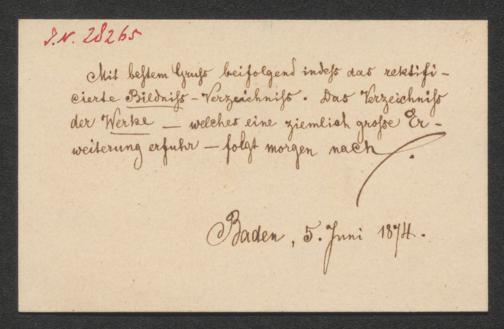 J.N. 28265
Mit beßtem Gruß beifolgend indeß das rektifi-
cierte Bildniß-Verzeichniß. Das Verzeichniß
der Werke — welches eine ziemlich große Er-
weiterung erfuhr — folgt morgen nach.
Baden, 5. Juni 1874.